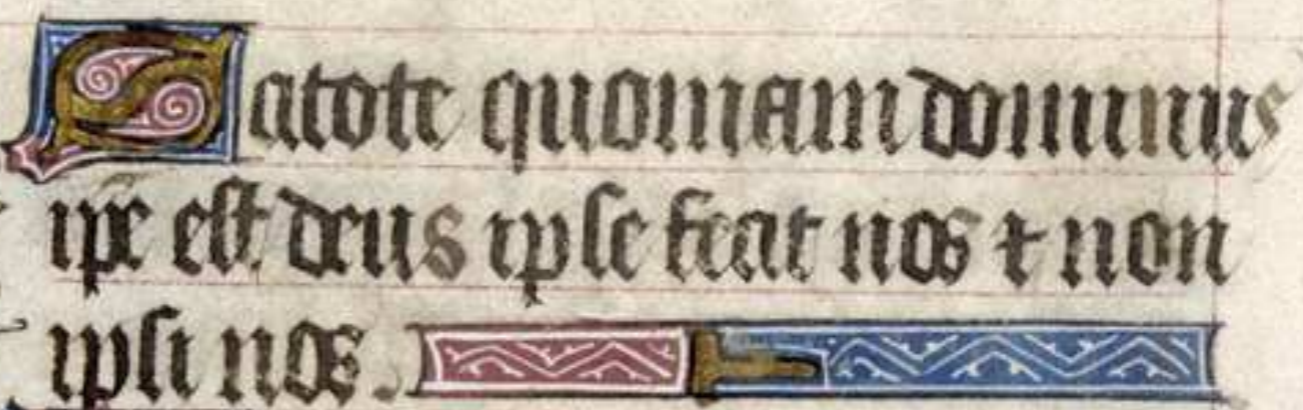 Satote quoniam dominus
ip̄e est deus ipse fecit nos ⁊ non
ipsi nos.